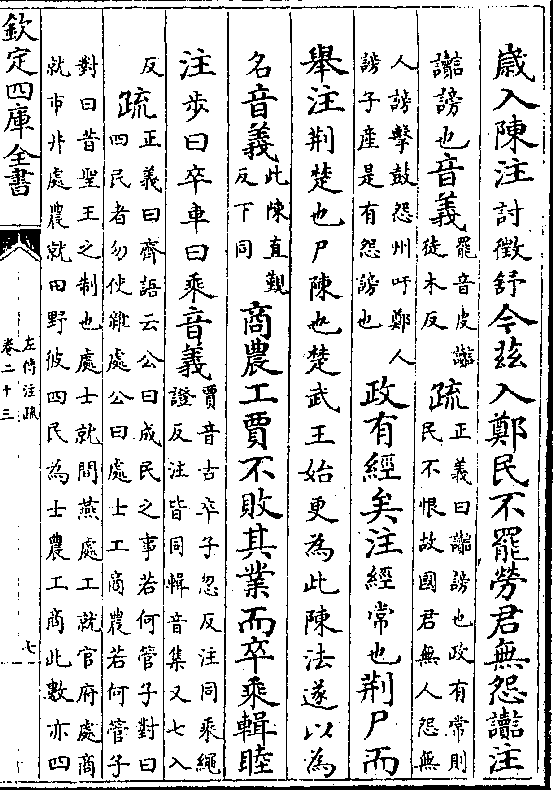 歳入陳注討徵舒今茲入鄭民不罷勞君無怨讟注
讟謗也音義罷音皮讟
徒木反
疏正義曰讟謗也政有常則
民不恨故國君無人怨無
人謗擊鼓怨州吁鄭人
謗子產是有怨謗也
政有經矣注經常也荆尸而
舉注荆楚也尸陳也楚武王始更為此陳法遂以為
名音義此陳直覲
反下同
商農工賈不敗其業而卒乘輯睦
注步曰卒車曰乘音義賈音古卒子忽反注同乘繩
證反注皆同輯音集又七入
反
疏正義曰齊語云公曰成民之事若何管子對曰
四民者勿使雜處公曰處士工商農若何管子
對曰昔聖王之制也處士就間燕處工就官府處商
就市井處農就田野彼四民為士農工商此數亦四
欽定四庫全書
左傳注疏
卷二十三
七